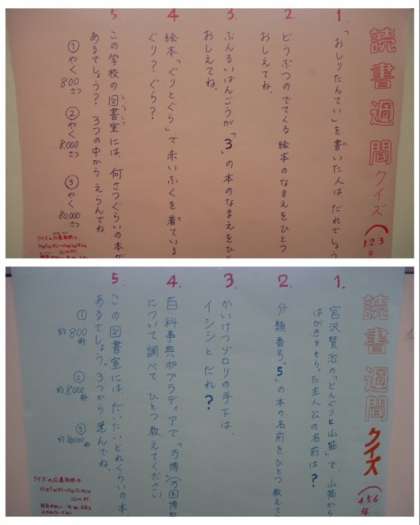 読書週間クイズ
1.2.3
1. 「おしりたんてい」を書いた人は だれでしょう
2. どうぶつのでてくる絵本のなまえをひとつ
おしえてね。
3. ぶんるいばんごうが「3」の本のなまえをひと
おしえてね。
4. 絵本「ぐりとぐら」で赤いふくを着ている
ぐり? ぐら?
5. この学校の図書室には、何さつぐらいの本が
あるでしょう? 3つの中からえらんでね
① やく 800さつ
② やく 8000さつ
③ やく 80000さつ
読書週間クイズ
4.5.6年
1. 宮沢賢治の「どんぐりと山猫」で、山猫から
はがきをもらった主人公の名前は?
2. 分類番号「5」の本の名前をひとつ教えて
3. かいけつゾロリの手下は、
イシシとだれ?
4. 百科事典ポプラディアで「万博」(万国博
について調べて、ひとつ教えてください
5. この図書室には だいたいどれくらいの本
あるでしょう。3つから選んでね。
① 約800
② 約8000
③